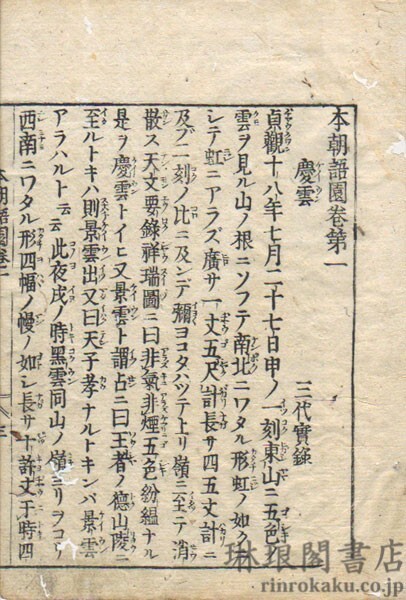 本朝語園卷第一
慶雲 三代實錄
貞觀十八年七月二十七日申ノ一刻東山ニ五色ノ
雲ヲ見ル山ノ根ニソフテ南北ニワタル形虹ノ如クニ
シテ虹ニアラズ廣サ一丈五尺計長サ四五丈計ニ
及ブ二刻ノ比ニ及ンデ彌ヨコタハツテ上リ嶺ニ至テ消
散ス天文要錄祥瑞圖ニ曰非氣非煙五色紛縕ナル
是ヲ慶雲トイヒ又景雲ト謂占ニ曰王者ノ德山陵ニ
至ルトキハ則景雲出又曰天子孝ナルトキンバ景雲
アラハルト云云此夜戌ノ時黑雲同山ノ嶺ヨリヲコリ
西南ニワタル形四幅ノ幔ノ如シ長サ十許丈于時四
本朝語園卷一
琳琅閣書店
rinrokaku.co.jp